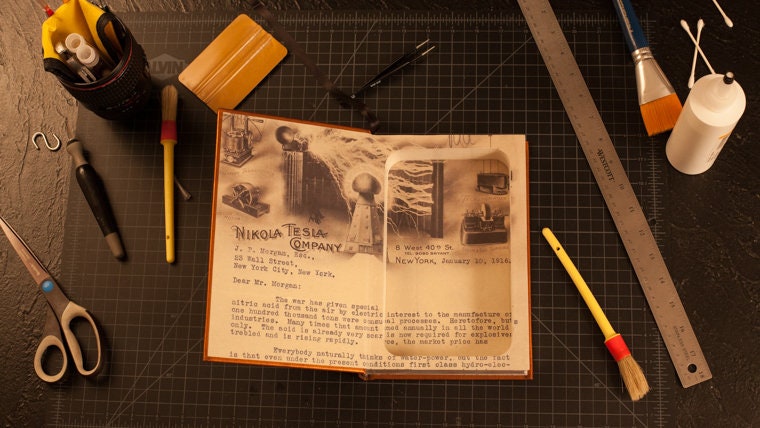 ALVIN
NIKOLA TESLA
COMPANY
8 West 40th St.
TEL. 9090 BRYANT.
NEW YORK, January 10, 1916.
J. P. Morgan, Esq.,
23 Wall Street,
New York City, New York.
Dear Mr. Morgan:
The war has given special interest to the manufacture of
nitric acid from the air by electric processes. Heretofore, but
one hundred thousand tons were annually in all the world
industries. Many times that amount is now required for explosives
only. The acid is already very scarce, the market price has
trebled and is rising rapidly.
Everybody naturally thinks of water-power, but the fact
is that even under the present conditions first class hydro-elec-
WESTCOTT